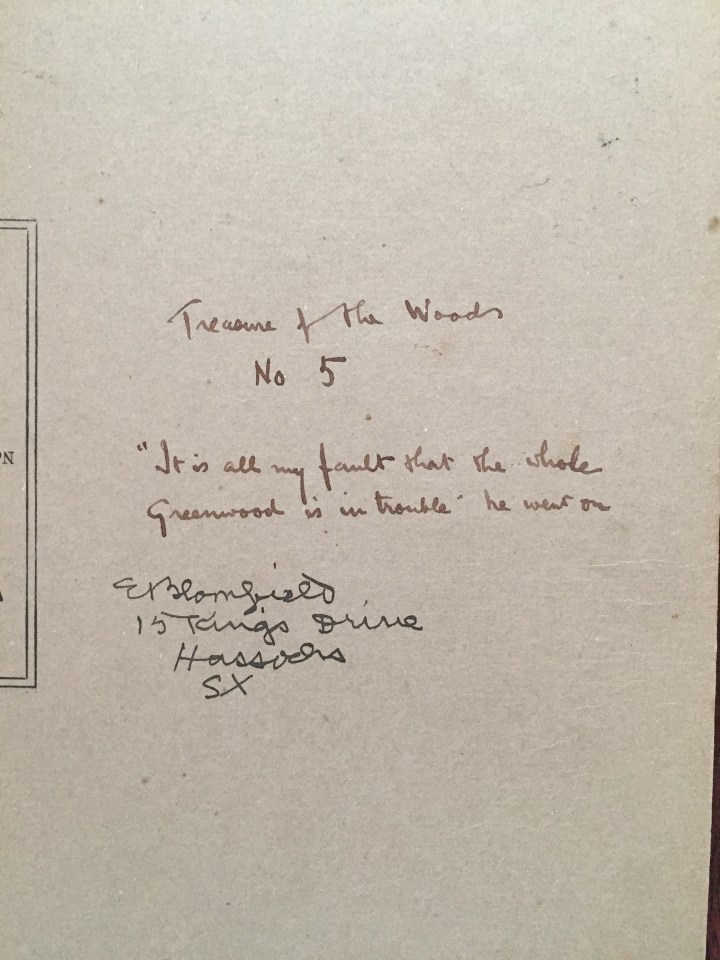 Treasure of the Woods
No 5
"It is all my fault that the whole
Greenwood is in trouble" he went on
E Blomfield
15 Kings Drive
Hassocks
SX